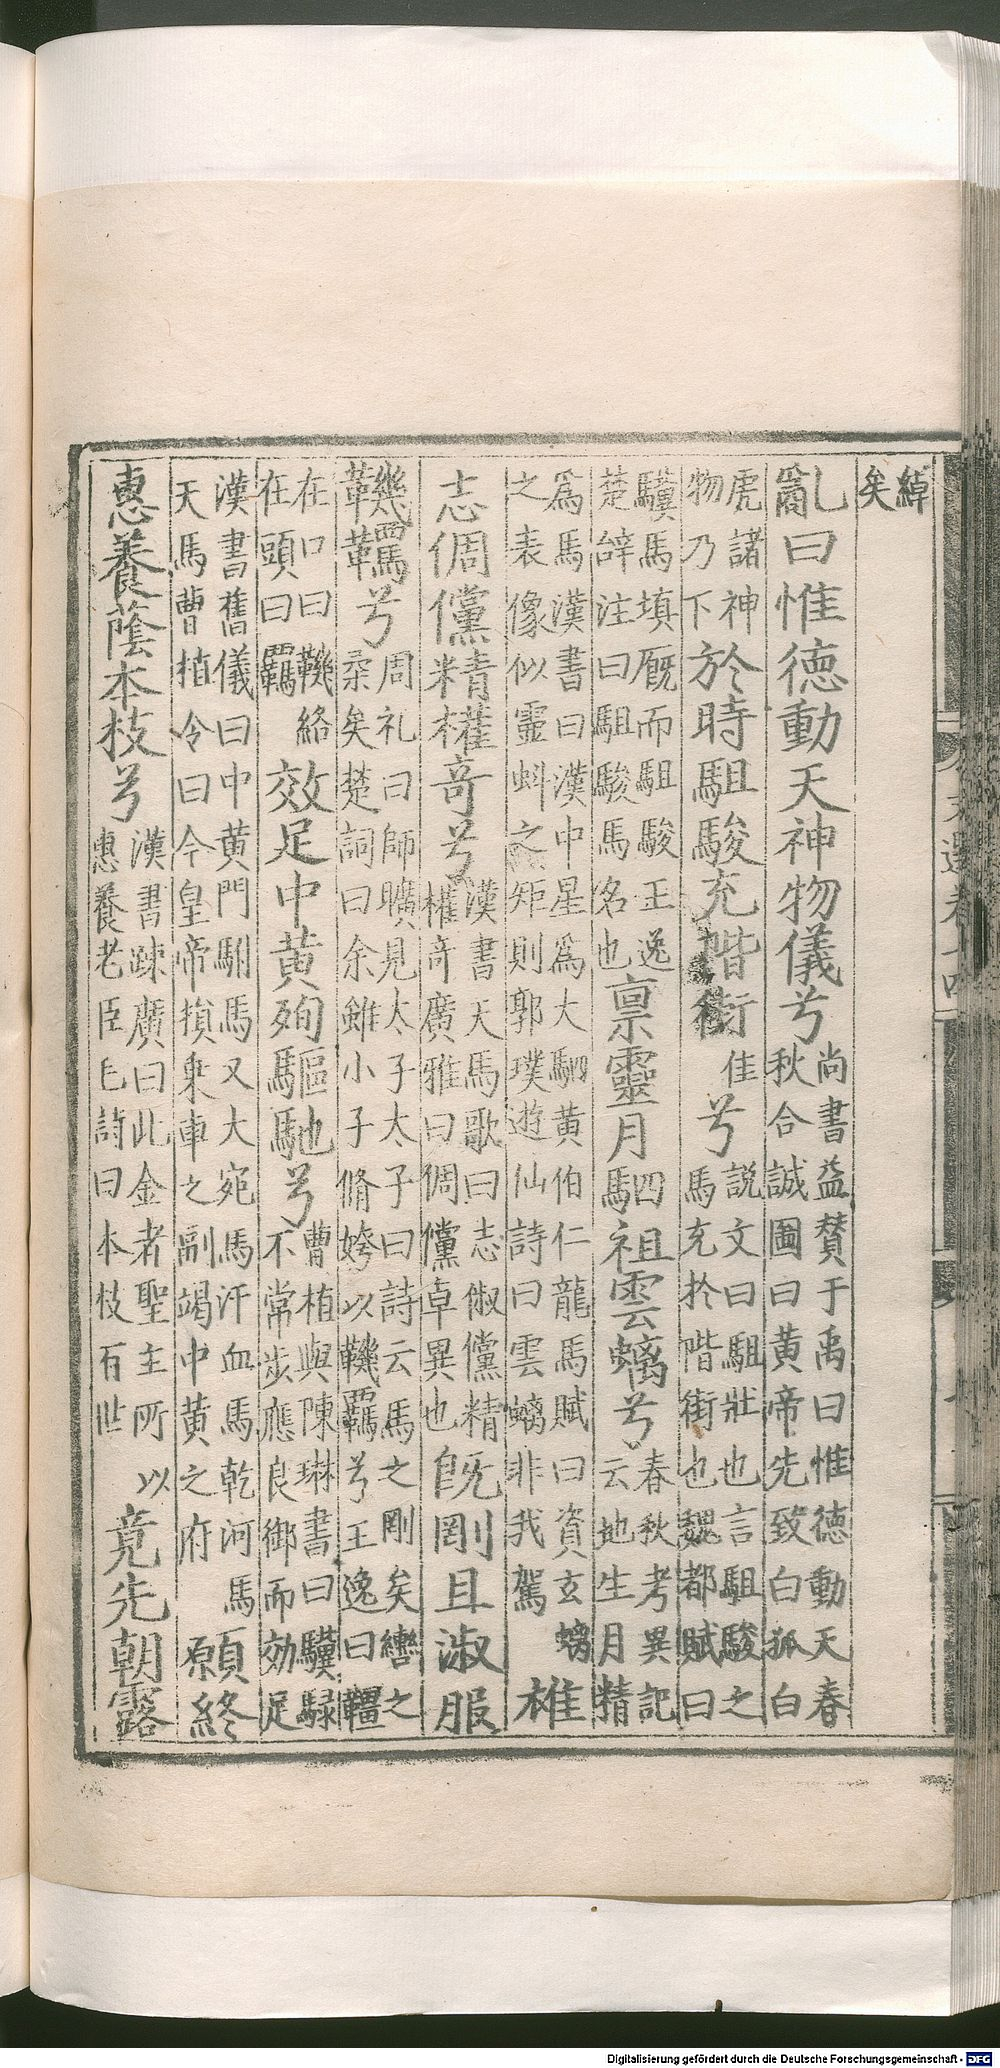 綽矣
亂曰惟德動天神物儀兮尚書益賛于禹曰惟德動天春秋合誠圖曰黄帝先致白狐白
虎諸神物乃下於時駔駿充階街佳兮説文曰駔壯也言駔駿之馬充於階街也魏都賦曰
驥馬填厩而駔駿王逸楚辝注曰駔駿馬名也稟靈月駟祖雲螭兮春秋考異記云地生月精
爲馬漢書曰漢中星爲大駟黄伯仁龍馬賦曰資玄螭之表像似靈虯之矩則郭璞遊仙詩曰雲螭非我駕雄
志倜儻精權奇兮漢書天馬歌曰志俶儻精權奇廣雅曰倜儻卓異也既剛且淑服
鞿羈兮周礼曰師曠見太子太子曰詩云馬之剛矣轡之柔矣楚詞曰余雖小子脩姱以鞿羈兮王逸曰韁
在口曰鞿絡在頭曰羈效足中黄殉驅馳兮曹植與陳琳書曰驥騄不常步應良御而効足
漢書舊儀曰中黄門駙馬又大宛馬汗血馬乾河馬天馬曹植令曰今皇帝損乗車之副竭中黄之府願終
惠養蔭本枝兮漢書疎廣曰此金者聖主所以惠養老臣毛詩曰本枝百世竟先朝露
Digitalisierung gefördert durch die Deutsche Forschungsgemeinschaft - DFG